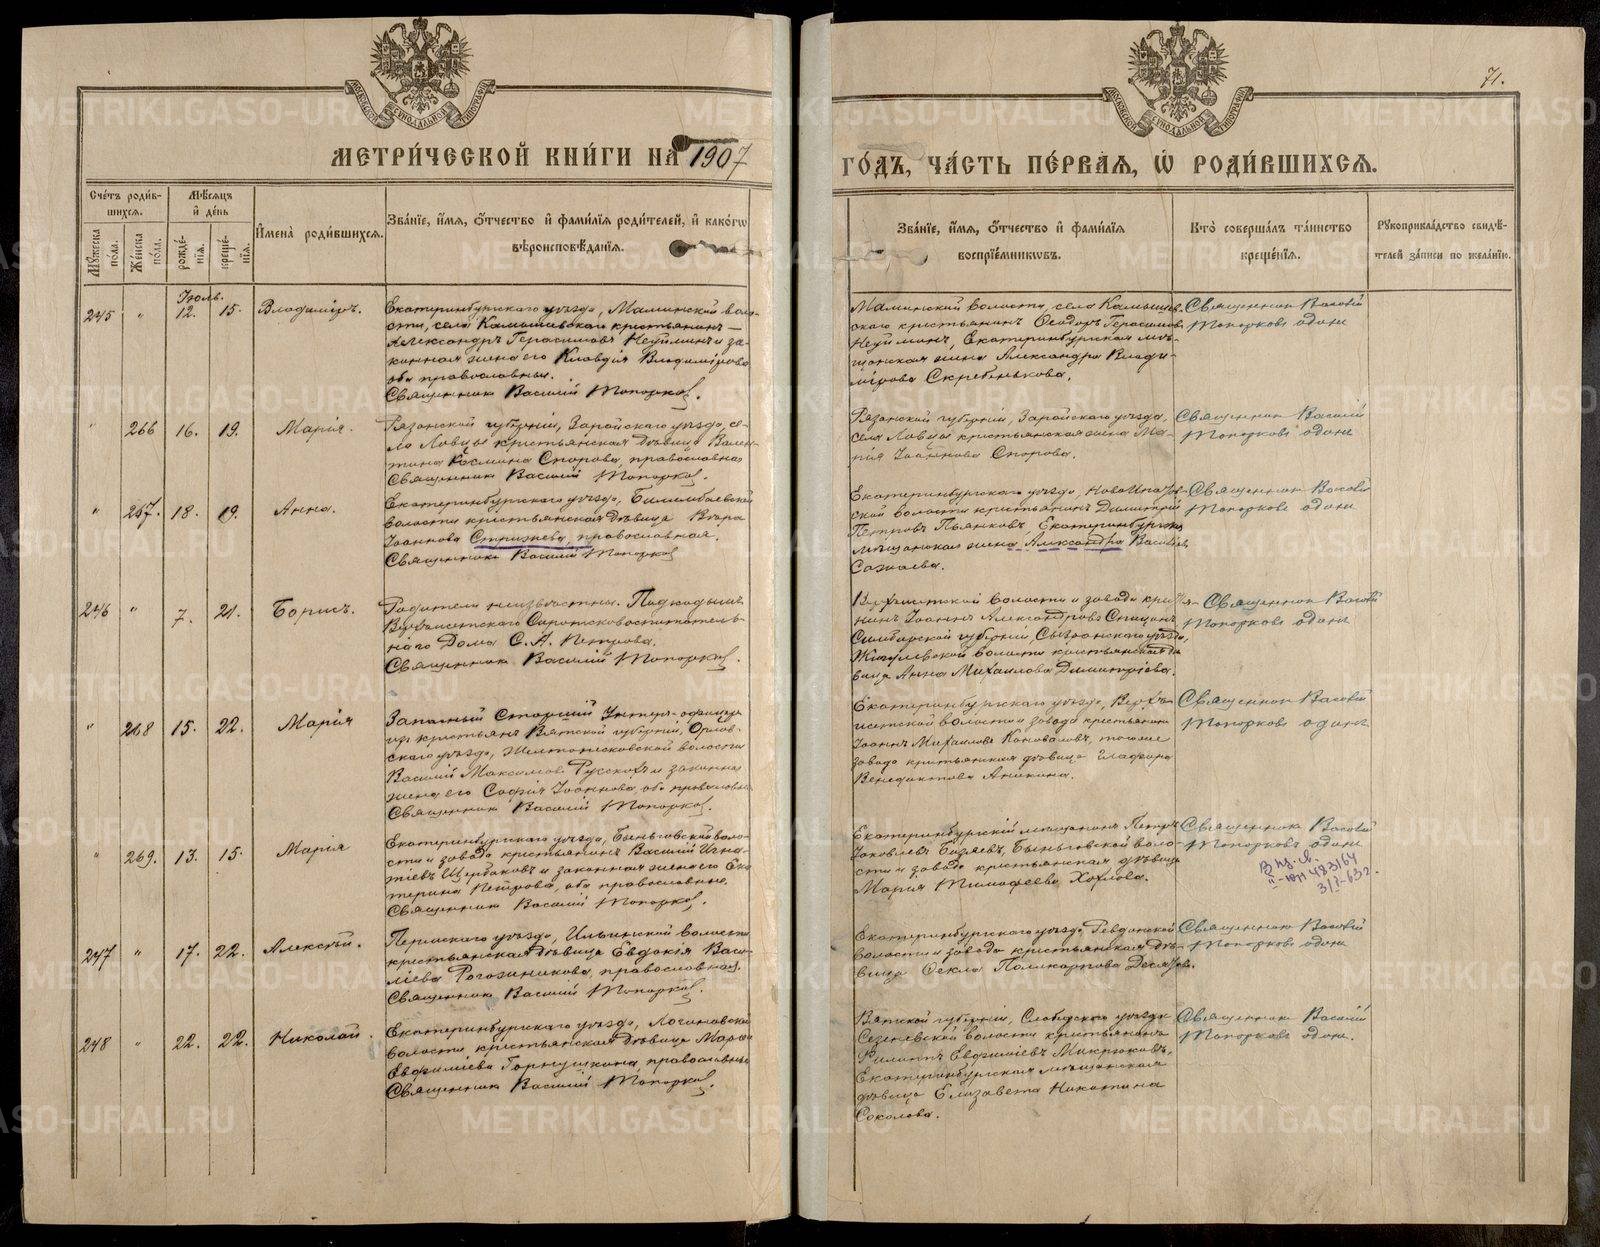 71.
МЕТРИ́ЧЕСКОЙ КНИ́ГИ НА 1907
ГО́ДЪ, ЧА́СТЬ ПЕ́РВАѦ, Ѡ РОДИ́ВШИХСѦ.
Сче́тъ роди́в-
шихсѧ.
Мꙋ́жеска по́ла.
Же́нска по́ла.
Мѣ́сѧцъ
и҆ де́нь
рожде́-
нїѧ.
креще́-
нїѧ.
И҆мена̀ роди́вшихсѧ.
Зва́нїе, и҆́мѧ, ѻ҆́тчество и҆ фами́лїѧ роди́телей, и҆ како́гѡ
вѣроисповѣ́данїѧ.
Зва́нїе, и҆́мѧ, ѻ҆́тчество и҆ фами́лїѧ
воспрїе́мникѡвъ.
Кто̀ соверша́лъ та́инство
креще́нїѧ.
Рꙋкоприкла́дство свидѣ́-
телей за́писи по жела́нїю.
Іюль.
245 " 12. 15. Владиміръ.
Екатеринбургскаго уѣзда, Маминской воло-
сти, села Камышевскаго крестьянинъ
Александръ Герасимовъ Неуйминъ и за-
конная жена его Клавдія Владимірова
оба православны.
Священникъ Василій Топорковъ.
Маминской волости, села Камышев-
скаго крестьянинъ Ѳеодоръ Герасимовъ
Неуйминъ, Екатеринбургская мѣ-
щанская жена Александра Влади-
мірова Скребенькова.
Священникъ Василій
Топорковъ одинъ
" 266 16. 19. Марія.
Рязанской губерніи, Зарайскаго уѣзда, се-
ла Ловцы крестьянская дѣвица Вален-
тина Косьмина Спорова, православная
Священникъ Василій Топорковъ.
Рязанской губерніи, Зарайскаго уѣзда,
села Ловцы крестьянская жена Ма-
рія Іоаннова Спорова.
Священникъ Василій
Топорковъ одинъ
" 267. 18. 19. Анна.
Екатеринбургскаго уѣзда, Билимбаевской
волости крестьянская дѣвица Вѣра
Іоаннова Стрижева, православная.
Священникъ Василій Топорковъ
Екатеринбургскаго уѣзда,
ской волости крестьянинъ Димитрій
Петровъ Пьянковъ, Екатеринбургская
мѣщанская жена Александра Васильева
Сажаева.
Священникъ Василій
Топорковъ одинъ
246 " 7. 21. Борисъ.
Родители неизвѣстны. Подкидышъ
Верхъисетскаго Сиротсковоспитатель-
наго Дома С. А. Петрова.
Священникъ Василій Топорковъ.
Верхъисетской волости и завода крестья-
нинъ Іоаннъ Александровъ Спицинъ
Симбирской губерніи Сызранскаго уѣзда,
Жигулевской волости крестьянская дѣ-
вица Анна Михаилова Димитріева.
Священникъ Василій
Топорковъ одинъ
" 268 15. 22. Марія
Запасный Старшій Унтеръ-офицеръ
изъ крестьянъ Вятской губерніи, Орлов-
скаго уѣзда, волости
Василій Максимовъ Русскихъ и законная
жена его Софія Іоаннова, оба православны
Священникъ Василій Топорковъ.
Екатеринбургскаго уѣзда, Верхъ-
исетской волости и завода крестьянинъ
Іоаннъ Михаиловъ Коноваловъ, того же
завода крестьянская дѣвица Глафира
Венедиктова Аникина.
Священникъ Василій
Топорковъ одинъ
" 269. 13. 15. Марія
Екатеринбургскаго уѣзда, Быньговской воло-
сти и завода крестьянинъ Василій Игна-
тіевъ Щербаковъ и законная жена его Ека-
терина Петрова, оба православные.
Священникъ Василій Топорковъ.
Екатеринбургскій мѣщанинъ Петръ
Іаковлевъ Бызяевъ, Быньговской воло-
сти и завода крестьянская дѣвица
Марія Тимоѳеева Хохлова.
Священникъ Василій
Топорковъ одинъ
483164
31/I-63г.
247 " 17. 22. Алексѣй.
Пермскаго уѣзда, Ильинской волости
крестьянская дѣвица Евдокія Васи-
ліева Рогозинникова, православная.
Священникъ Василій Топорковъ.
Екатеринбургскаго уѣзда, Ревдинской
волости и завода крестьянская дѣ-
вица Ѳекла Поликарпова Десятова.
Священникъ Василій
Топорковъ одинъ
248 " 22. 22. Николай.
Екатеринбургскаго уѣзда, Логиновской
волости крестьянская дѣвица Марія
Евфиміева Горнушкина, православная
Священникъ Василій Топорковъ.
Вятской губерніи, Слободскаго уѣзда
Сезеневской волости крестьянинъ
Филиппъ Евфиміевъ Микрюковъ,
Екатеринбургская мѣщанская
дѣвица Елизавета Никитина
Соколова.
Священникъ Василій
Топорковъ одинъ.